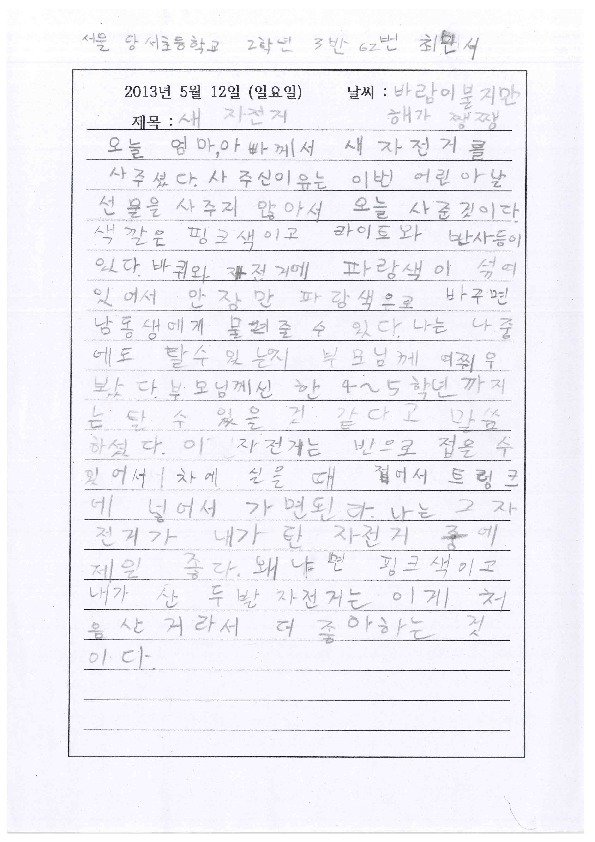 서울 당서초등학교 2학년 3반 62번 최민서
2013년 5월 12일 (일요일) 날씨 : 바람이불지만
제목 : 새 자전거 해가 쨍쨍
오늘 엄마,아빠께서 새 자전거를
사주셨다. 사주신이유는 이번 어린아날
선물을 사주지 않아서 오늘 사준것이다.
색깔은 핑크색이고 라이트와 반사등이
있다. 바퀴와 자전거에 파랑색이 섞여
있어서 안장만 파랑색으로 바꾸면
남동생에게 물려줄 수 있다. 나는 나중
에도 탈수 있는지 부모님께 여쭤우
봤다. 부모님께선 한 4~5학년까지
는 탈 수 있을 것 같다고 말씀
하셨다. 이 자전거는 반으로 접을 수
있어서 차에 실을 때 접어서 트렁크
에 넣어서 가면된다. 나는 그 자
전거가 내가 탄 자전거 중에
제일 좋다. 왜냐면 핑크색이고
내가 산 두발 자전거는 이게 처
음산거라서 더 좋아하는 것
이다.